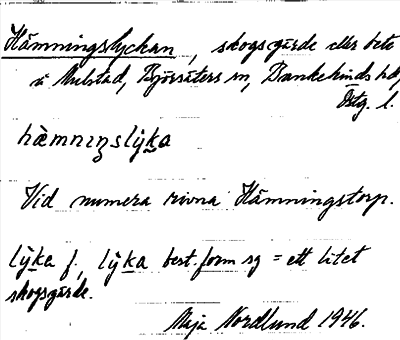 Hämningslyckan, skogsgärde eller bete
i Mulstad, Björsäters sn, Bankekinds hd,
Östg. l.
hämniŋslỳka
Vid numera rivna Hämningstorp.
lỳka f., lỳka best. form sg = ett litet
skogsgärde.
Maja Nordlund 1946.